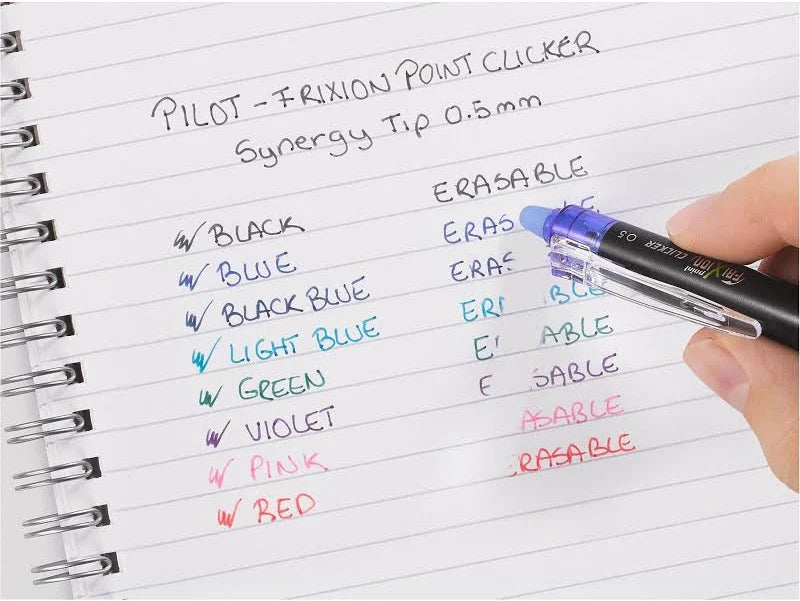 PILOT - FRIXION POINT CLICKER
Synergy Tip 0.5mm
ERASABLE
BLACK ERAS
BLUE ERAS
BLACK BLUE ERI BLE
LIGHT BLUE E ABLE
GREEN E SABLE
VIOLET ASABLE
PINK RASABLE
RED
FRIXION point CLICKER 0.5